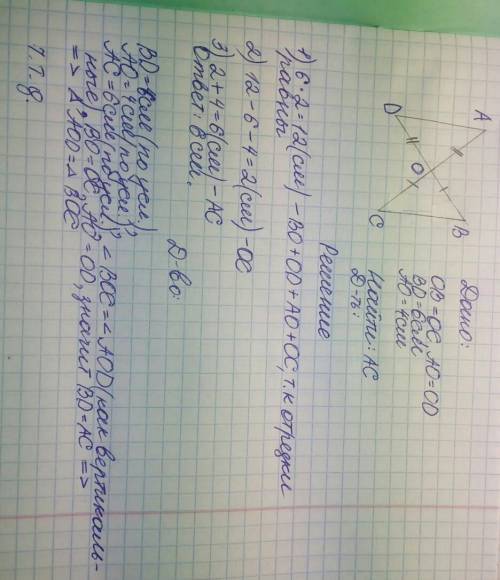 A
B
D
O
C
Дано:
OB=OC, AO=OD
BD=6см
AO=4см
Найти: AC
Д-ть:
Решение
1) 6·2=12(см) – BO+OD+AO+OC, т.к отрезки
равны
2) 12-6-4=2(см) – OC
3) 2+4=6(см) – AC
Ответ: 6см.
Д-во:
BD=6см(по усл)
AO=4см(по усл.)
AC=6см(по усл)
∠BOC=∠AOD(как вертикаль-
ные), BO=OC, AO=OD, значит BD=AC =>
=> Δ AOD=Δ BOC
ч.т.д.